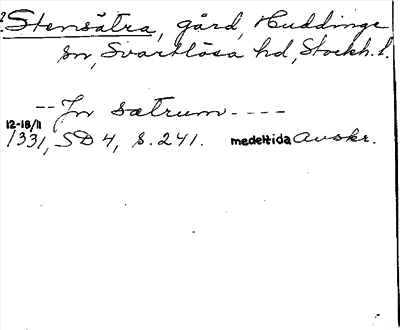 Stensätra, gård, Huddinge
sn, Svartlösa hd, Stockh. l.
-- Jn sætrum ----
12-18/11
1331, SD 4, s. 241. medeltida Avskr.